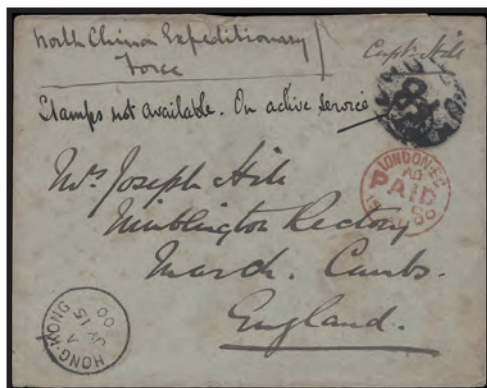 North China Expeditionary
Force
Capt. Hill
Stamps not available. On active service
Mrs. Joseph Hill
Wimblington Rectory
March. Cambs.
England.
LONDON.E.C
PAID
HONG-KONG
A
JY 15
00